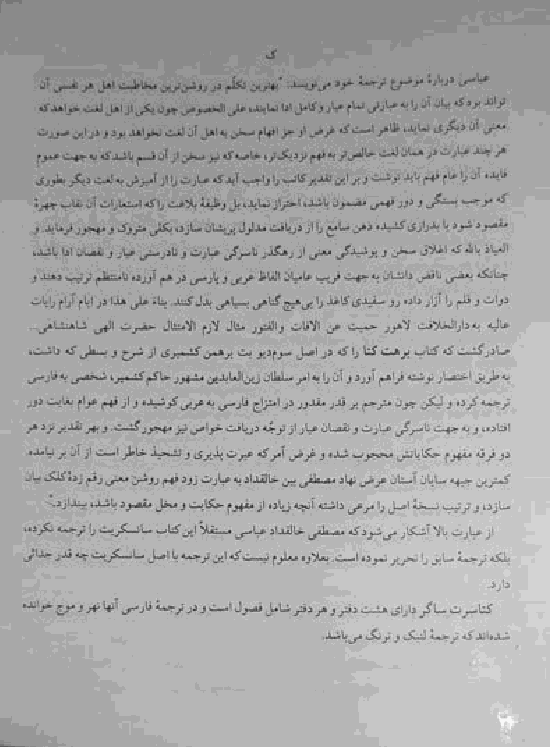 ک
عباسی دربارهٔ موضوع ترجمهٔ خود می‌نویسد: "بهترین تکلّم در روشن‌ترین مخاطبت اهل هر نفسی آن
تواند بود که بیان آن را به عبارتی تمام عیار و کامل ادا نمایند، علی الخصوص چون یکی از اهل لغت خواهد که
معنی آن دیگری نماید، ظاهر است که غرض او جز افهام سخن به اهل آن لغت نخواهد بود و در این صورت
هر چند عبارت در همان لغت خالص‌تر به فهم نزدیک‌تر، خاصه که نیز سخن از آن قسم باشد که به جهت عموم
فایده، آن را عام فهم باید نوشت و بر این تقدیر کاتب را واجب آید که عبارت را از آمیزش به لغت دیگر بطوری
که موجب بستگی و دور فهمی مضمون باشد، احتراز نماید، بل وظیفهٔ بلاغت را که استعارات آن نقاب چهرهٔ
مقصود شود یا بدرازی کشیده ذهن سامع را از دریافت مدلول پریشان سازد، بکلی متروک و مهجور فرماید. و
العیاذ بالله که اغلاق سخن و پوشیدگی معنی از رهگذر ناسرگی عبارت و نادرستی عیار و نقصان ادا باشد،
چنانکه بعضی ناقص دانشان به جهت فریب عامیان الفاظ عربی و پارسی در هم آورده نامنتظم ترتیب دهند و
دوات و قلم را آزار داده رو سفیدی کاغذ را بی‌هیچ گناهی بسیاهی بدل کنند. بناءً علی هذا در ایام آرام رایات
عالیه به دارالخلافت لاهور حمیت عن الآفات والفتور مثال لازم الامتثال حضرت الهی شاهنشاهی...
صادر گشت که کتاب برهت کتا را که در اصل سوم‌دیو بت برهمن کشمیری از شرح و بسطی که داشت،
به طریق اختصار نوشته فراهم آورد و آن را به امر سلطان زین‌العابدین مشهور حاکم کشمیر، شخصی به فارسی
ترجمه کرده و لیکن چون مترجم بر قدر مقدور در امتزاج فارسی به عربی کوشیده و از فهم عوام بغایت دور
افتاده، و به جهت ناسرگی عبارت و نقصان عیار از توجّه دریافت خواص نیز مهجور گشت. و بهر تقدیر نزد هر
دو فرقه مفهوم حکایاتش محجوب شده و غرض آمر که عبرت پذیری و تشحیذ خاطر است از آن بر نیامده.
کمترین جبهه سایان آستان عرض نهاد مصطفی بین خالقداد به عبارت زود فهم روشن معنی رقم زدهٔ کلک بیان
سازد، و ترتیب نسخهٔ اصل را مرعی داشته آنچه زیاده از مفهوم حکایت و مخل مقصود باشد، بیندازد."
از عبارت بالا آشکار می‌شود که مصطفی خالقداد عباسی مستقلاً این کتاب سانسکریت را ترجمه نکرده،
بلکه ترجمهٔ سابق را تحریر نموده است. بعلاوه معلوم نیست که این ترجمه با اصل سانسکریت چه قدر جدائی
دارد.
کتاسرت ساگر دارای هشت دفتر و هر دفتر شامل فصول است و در ترجمهٔ فارسی آنها نهر و موج خوانده
شده‌اند که ترجمهٔ لنبک و ترنگ می‌باشد.